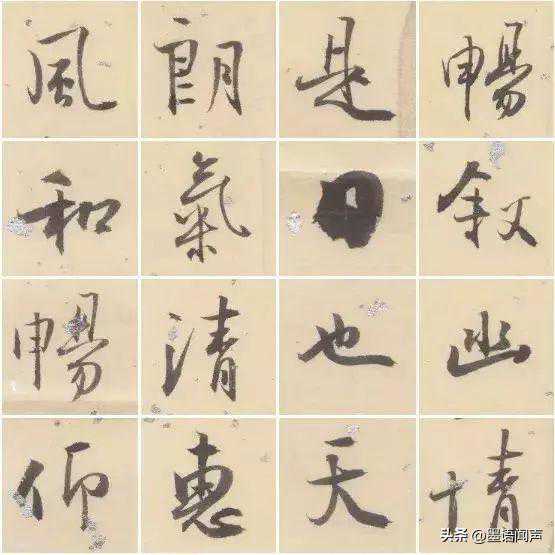 暢叙幽情
是日也天
朗氣清惠
風和暢仰
头条 @墨语闻声